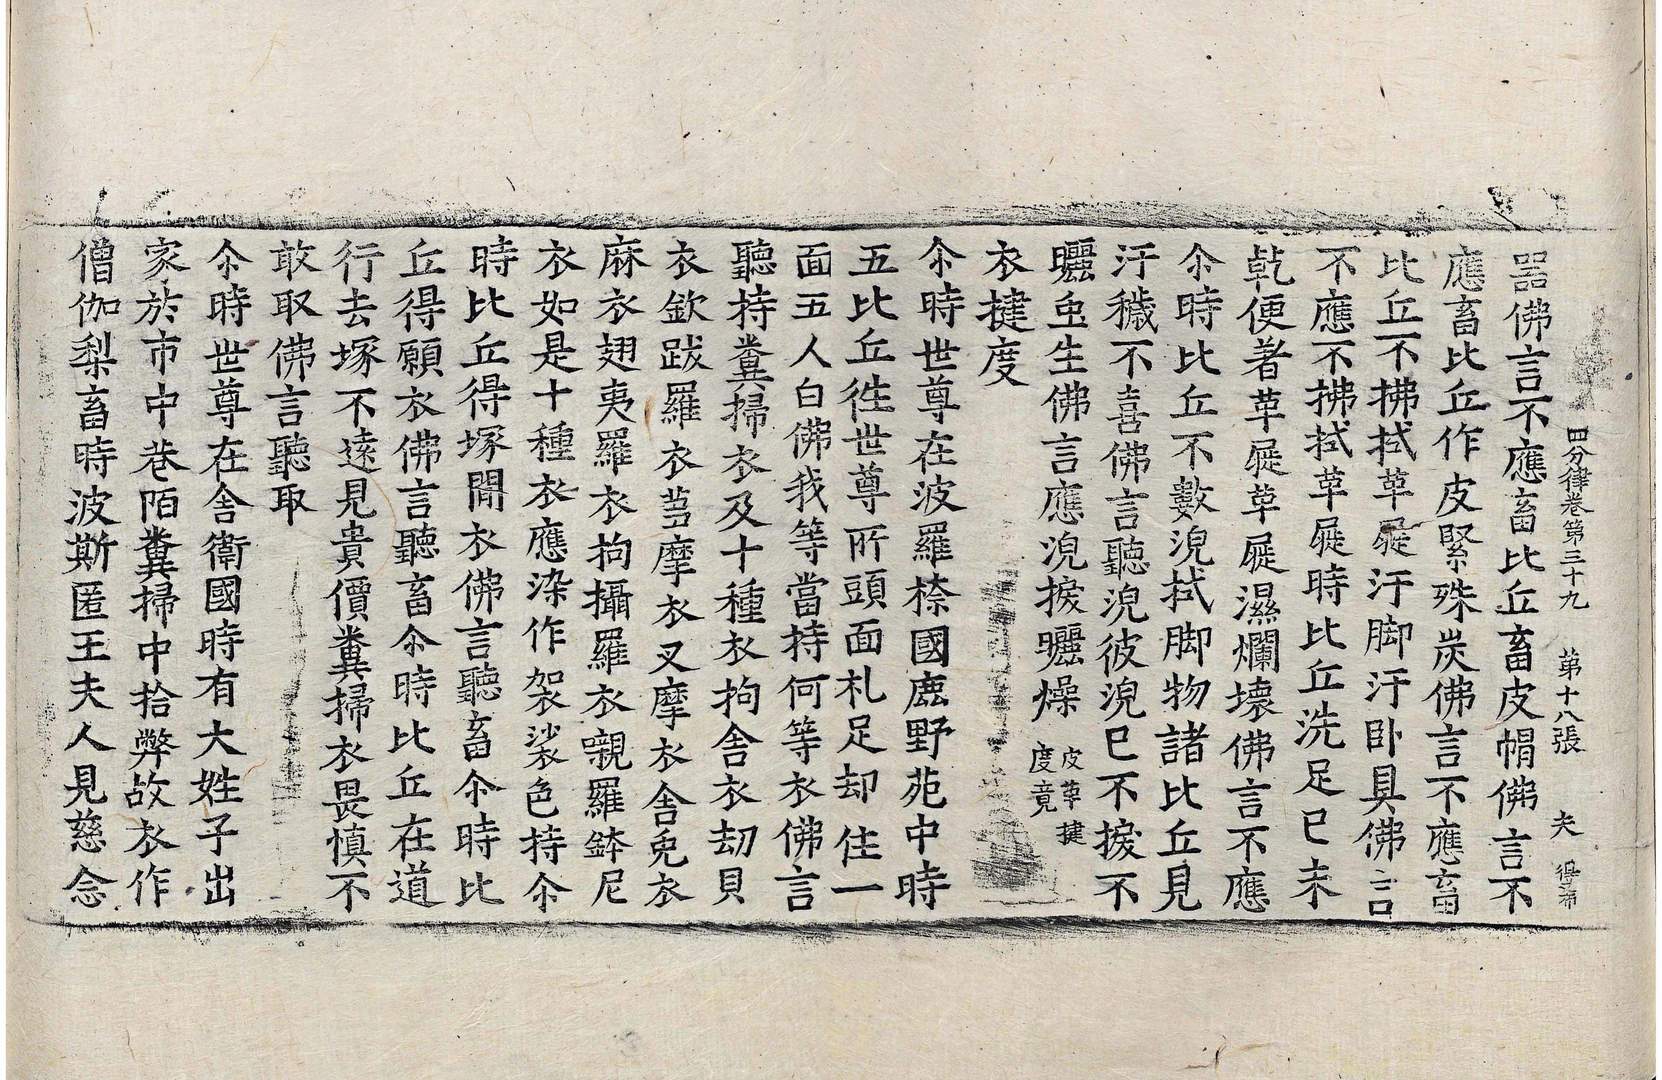 四分律卷第三十九　第十八張　夫　得福
器佛言不應畜比丘畜皮帽佛言不
應畜比丘作皮緊殊炭佛言不應畜
比丘不拂拭草屣汙脚汙卧具佛言
不應不拂拭草屣時比丘洗足已未
乹便著草屣草屣濕爛壞佛言不應
尒時比丘不數浣拭脚物諸比丘見
汙穢不喜佛言聽浣彼浣已不捩不
曬虫生佛言應浣捩曬燥皮革揵度竟
衣揵度
尒時世尊在波羅㮈國鹿野苑中時
五比丘徃世尊所頭面礼足却住一
面五人白佛我等當持何等衣佛言
聽持糞掃衣及十種衣拘舍衣劫貝
衣欽跋羅衣芻摩衣叉摩衣舍兔衣
麻衣翅夷羅衣拘攝羅衣嚫羅鉢尼
衣如是十種衣應染作袈裟色持尒
時比丘得塚間衣佛言聽畜尒時比
丘得願衣佛言聽畜尒時比丘在道
行去塚不遠見貴價糞掃衣畏慎不
敢取佛言聽取
尒時世尊在舍衛國時有大姓子出
家於市中巷陌糞掃中拾弊故衣作
僧伽梨畜時波斯匿王夫人見慈念